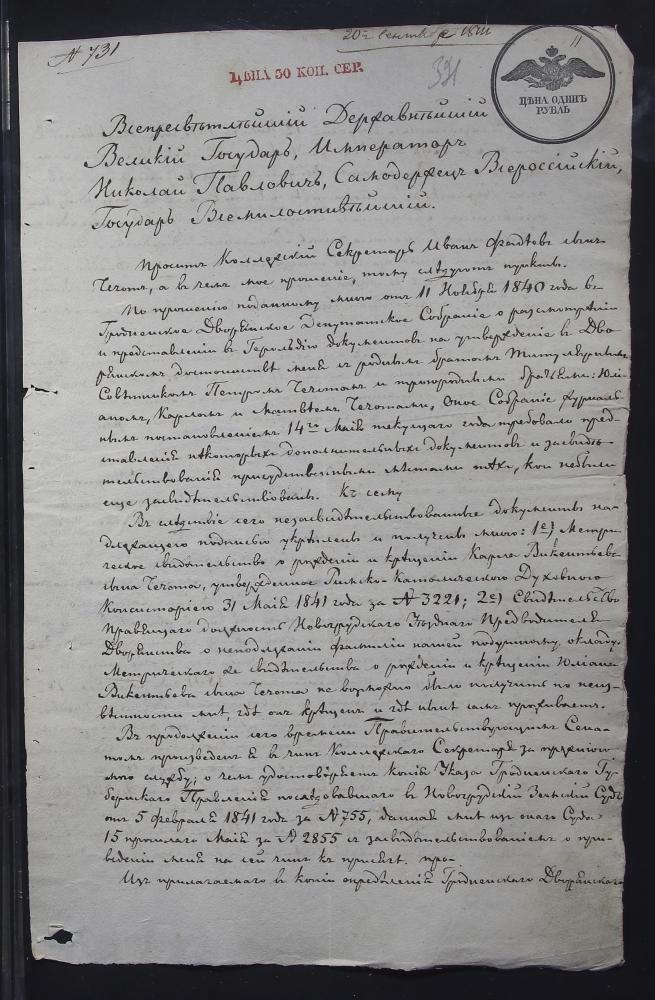 № 731
20го Сентября 1841
11
ЦѢНА 30 КОП. СЕР.
321
ЦѢНА ОДИНЪ
РУБЛЬ
Всепресвѣтлѣйшій Державнѣйшій
Великій Государь, Императоръ
Николай Павловичъ, Самодержецъ Всероссійскій,
Государь Всемилостивѣйшій.
Проситъ Коллежскій Секретарь Иванъ Фадѣевъ сынъ
Чечотъ, а въ чемъ мое прошеніе, тому слѣдуютъ пункты.
По прошенію поданному мною отъ 11 Ноября 1840 года въ
Гродненское Дворянское Депутатское Собраніе о разсмотрѣніи
и представленіи въ Герольдію документовъ на утвержденіе въ Дво-
рянскомъ достоинствѣ меня съ роднымъ братомъ Титулярнымъ
Совѣтникомъ Петромъ Чечотомъ и троюродными братьями: Юлі-
аномъ, Карломъ и Матвѣемъ Чечотами, Оное Собраніе журналь-
нымъ постановленіемъ 14го Мая текущаго года требовало пред-
ставленія нѣкоторыхъ дополнительныхъ документовъ и засвидѣ-
тельствованія присудственными мѣстами тѣхъ, кои небыли
еще засвидѣтельствованы. Къ сему
Въ слѣдствіе сего незасвидѣтельствованные документы на-
длежащего подписью укрѣплены и получены мною: 1е) Метри-
ческое свидѣтельство о рожденіи и крещеніи Карла Викентьева
сына Чечота, утвержденное Римско-Католическою Духовною
Консисторіею 31 Мая 1841 года за № 3221; 2е) Свидѣтельство
Правящаго должность Новогрудскаго Уѣзднаго Предводителя
Дворянства о неподлежаніи фамиліи нашей подушному окладу.
Метрическаго же свидѣтельства о рожденіи и крещеніи Юліана
Викентьева сына Чечота не возможно было получить по неиз-
вѣстности мнѣ, гдѣ онъ крещенъ и гдѣ нынѣ самъ проживаетъ.
Въ продолженіи сего времени Правительствующимъ Сена-
томъ произведенъ я въ чинъ Коллежскаго Секретаря за
службу; о чемъ удостовѣряетъ копія Указа Гродненскаго Гу-
бернскаго Правленія послѣдовавшаго въ Новогрудскій Земскій Судъ
отъ 5 февраля 1841 года за № 755, данная мнѣ изъ онаго Суда
15 прошлаго Мая за № 2855 съ засвидѣтельствованіемъ о при-
веденіи меня на сей чинъ къ присягѣ. про-
Изъ прилагаемаго въ копіи опредѣленія Гродненскаго Дворянскаго